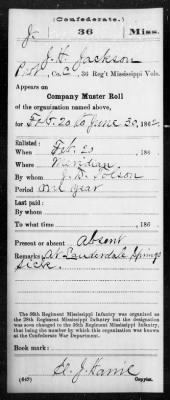 (Confederate.)
J. 36 Miss.
J. H. Jackson
Pvt, Co. C, 36 Reg't Mississippi Vols.
Appears on
Company Muster Roll
of the organization named above,
for Feb. 20 to June 30, 1862.
Enlisted:
When Feb. 20, 186
Where Meridian
By whom J. D.
Period One year
Last paid:
By whom
To what time , 186 .
Present or absent Absent
Remarks: At Lauderdale Springs
sick.
The 36th Regiment Mississippi Infantry was organized as
the 28th Regiment Mississippi Infantry but the designation
was soon changed to the 36th Regiment Mississippi Infantry,
that being the number by which this organization was known
at the Confederate War Department.
Book mark:
(647) Copyist.